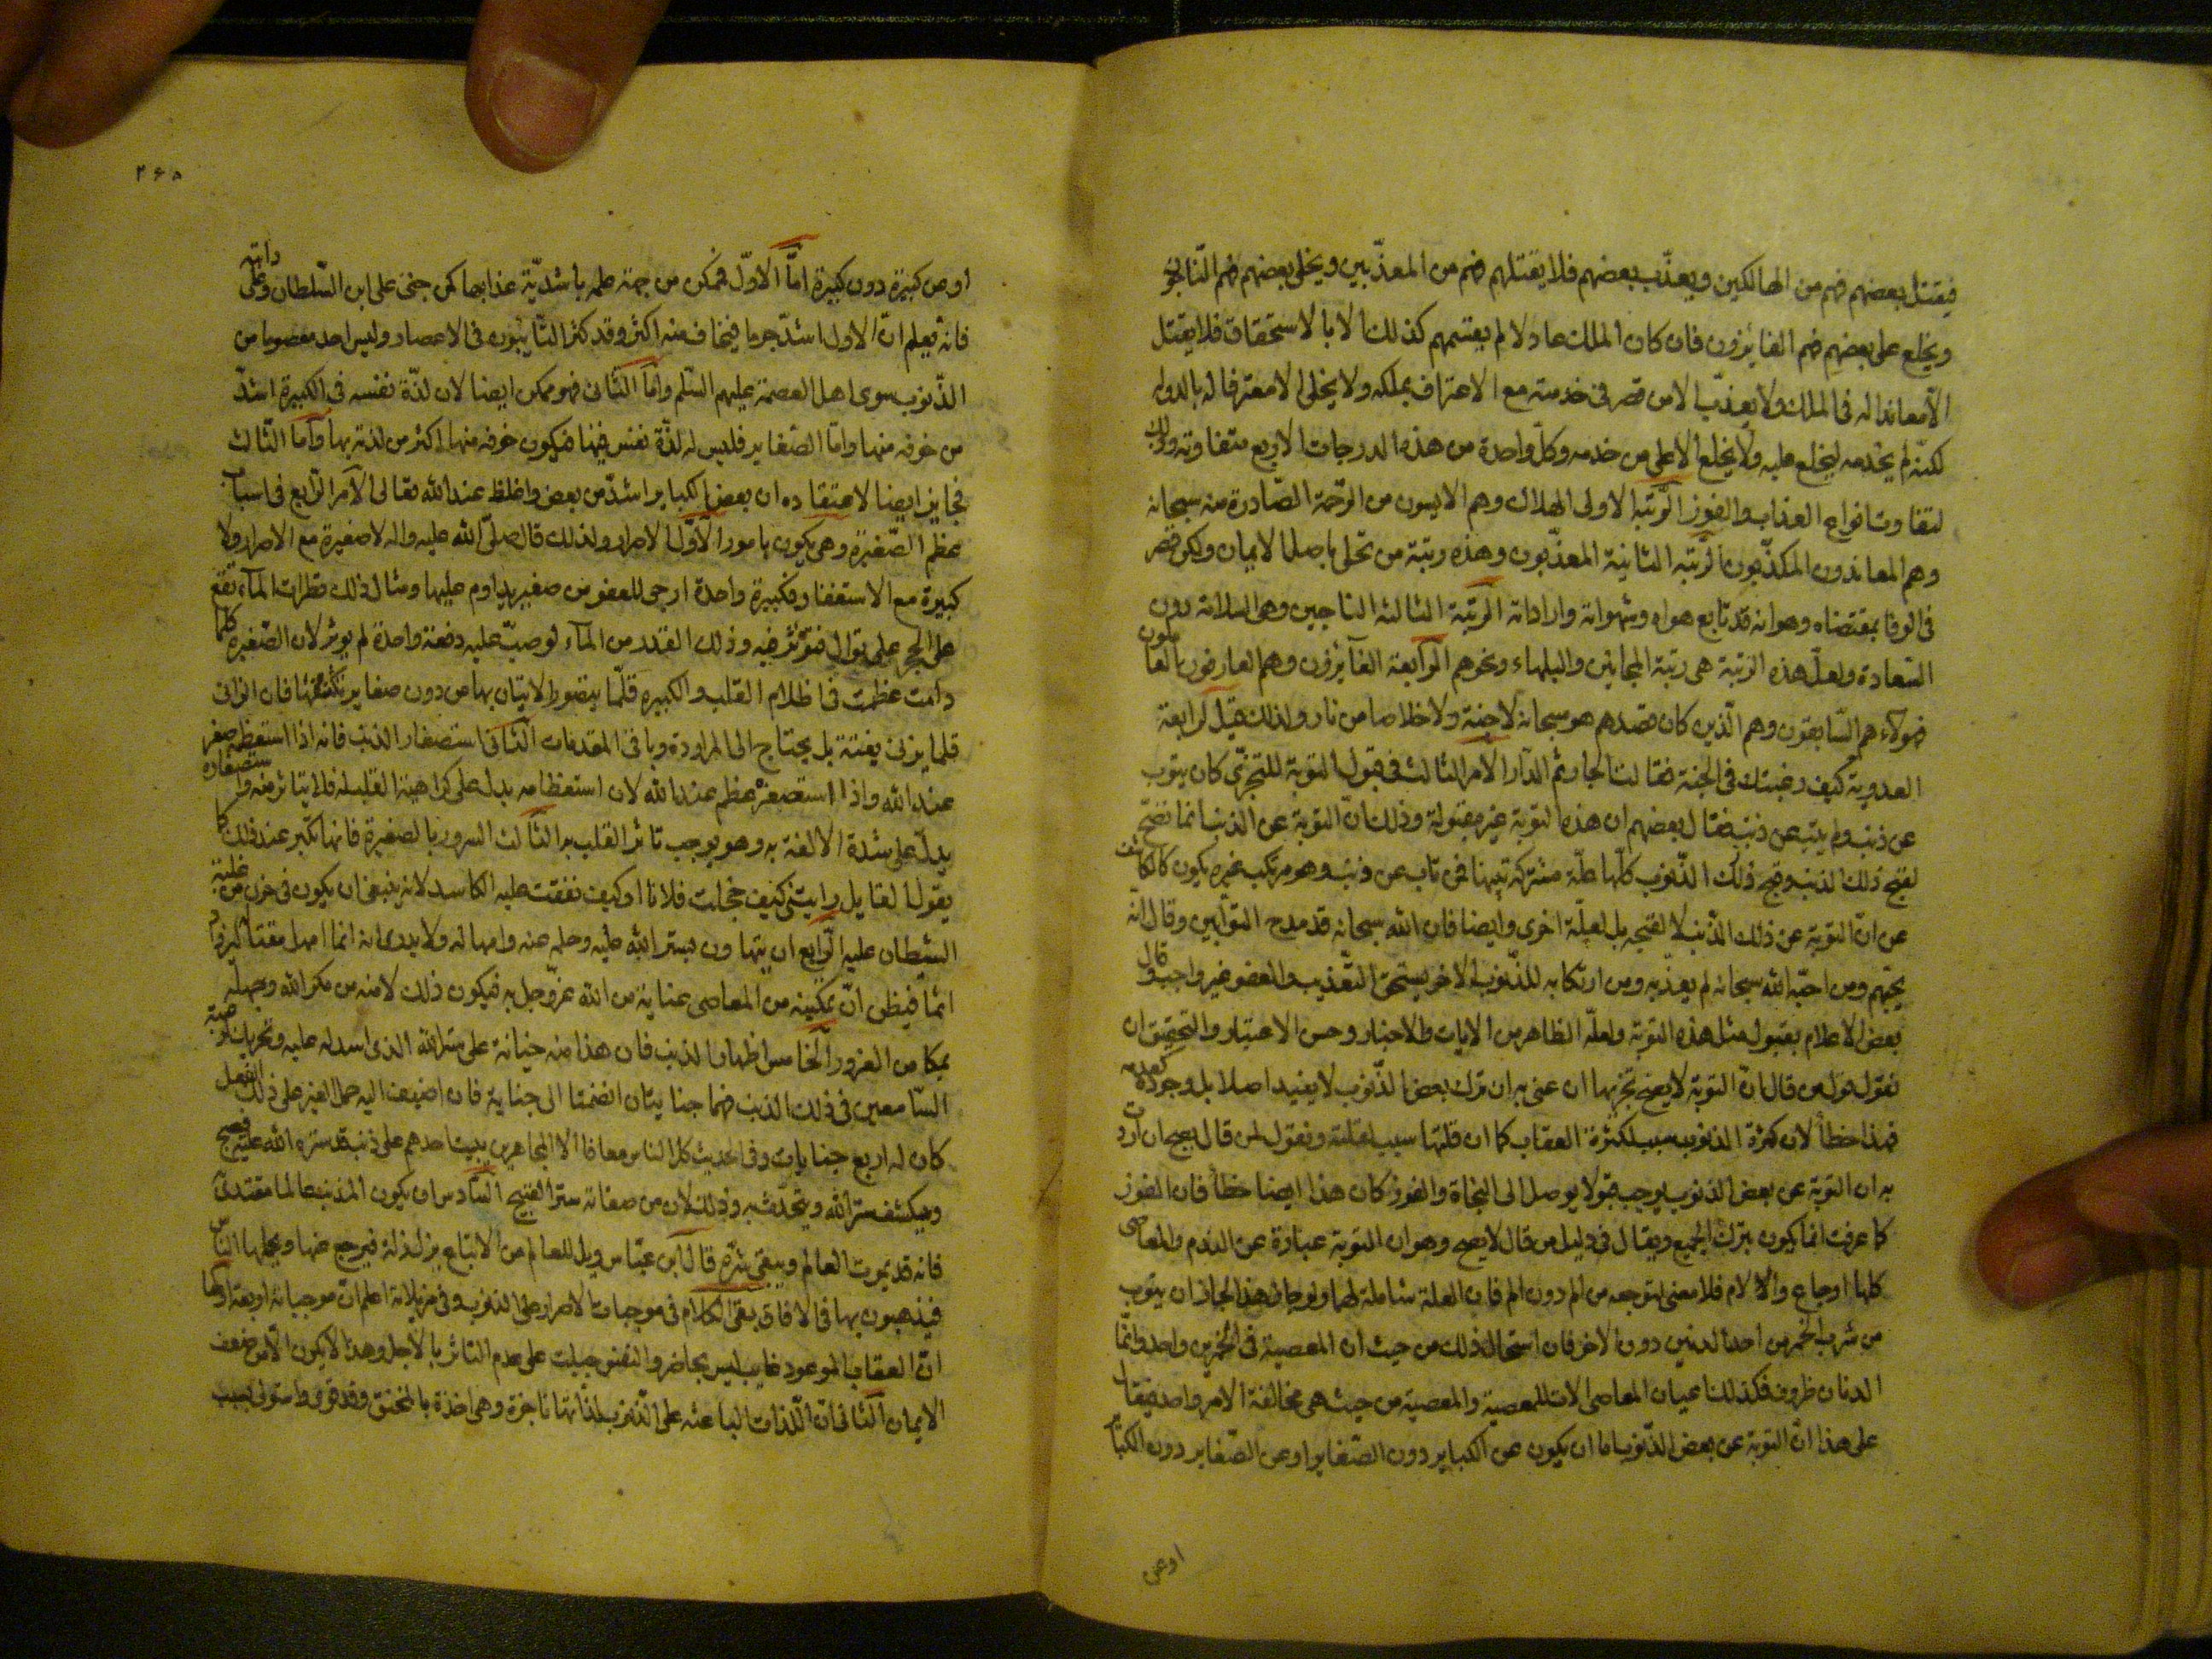 فيقتل بعضهم فهم من الهالكين ويعذّب بعضهم فلا يقتلهم فهم من المعذّبين ويخلى بعضهم فهم النّاجون
ويخلع على بعضهم فهم الفايزون فان كان الملك عادلا لم يقسمهم كذلك الا بالاستحقاق فلا يقتل
الاّ معاندا له فى الملك ولا يعذّب الا من قصر فى خدمته مع الاعتراف بملكه ولا يخلى الا معترفا له بالدولة
لكنّه لم يخدمه ليخلع عليه ولا يخلع الا على من خدمه وكلّ واحدة من هذه الدرجات الاربع متفاوته
لتفاوت انواع العذاب والفوز الرّتبة الاولى الهلاك وهم الايسون من الرّحمة الصّادرة منه سبحانه
وهم المعاندون المكذّبون الرّتبه الثانية المعذّبون وهذه رتبة من تحلى باصل الايمان ولكن قصر
فى الوفا بمقتضاه وهو انه قد تابع هواه وشهواته واراداته الرتبة الثالثه الناجين وهى السلامة دون
السّعادة ولعلّ هذه الرّتبة هى رتبة المجانين والبلهاء ونحوهم الرّابعة الفآئزون وهم العارفون العاملون
فهولآء هم السّابقون وهم الّذين كان قصدهم هو سبحانه لا جنة ولا خلاصا من نار ولذلك قيل لرابعة
العدوية كيف رغبتك فى الجنة فقالت الجار ثم الدّار الامر الثالث فى قبول التوبة للتجزّى كان يتوب
عن ذنب ولم يتب عن ذنب فقال بعضهم ان هذه التوبة غير مقبولة وذلك انّ التوبة عن الذنب انما تصحّ
لقبح ذلك الذنب وقبح ذلك الذّنوب كلّها علّة مشتركة بينها فمن تاب عن ذنب وهو مرتكب غيره يكون كالكاشف
عن انّ التوبة عن ذلك الذّنب لا لقبحه بل لعلّة اخرى وايضا فان الله سبحانه قد مدح التوّابين وقال انه
يحبّهم ومن احبّه الله سبحانه لم يعذّبه ومن ارتكابه للذّنوب الاخر يستحق التّعذيب والعفو غير واجب وقال
بعض الاعلام بقبول مثل هذه التوبة ولعلّه الظاهر من الايات والاخبار وحسن الاعتبار والتحقيق ان
نقول قول من قال انّ التوبة لا يصح تجزيها ان عنى به ان ترك بعض الذّنوب لا يفيد اصلا بل وجوده كعدمه
فهذا خطأ لان كثرة الذنوب سبب لكثرة العقاب كما ان قلتها سبب لقلته ونقول لمن قال يصح ان اراد
به ان التوبة عن بعض الذنوب يوجب قبولا يوصل الى النجاة والفوز كان هذا ايضا خطأ فان الفوز
كما عرفت انما يكون بترك الجميع ويقال فى دليل من قال لا يصح وهو ان التوبة عبارة عن الندم والمعاصى
كلها اوجاع والآلام فلا معنى لتوجعه من الم دون الم فان العلة شاملة لهما ولو جاز هذا لجاز ان يتوب
من شرب الخمر من احد الدنين دون الاخر فان استحال ذلك من حيث ان المعصية فى الخمرين واحد وانّما
الدنان ظروف فكذلك اعيان المعاصى الات للمعصية والمعصية من حيث هى مخالفة الامر واحد فيقال
على هذا انّ التوبة عن بعض الذّنوب اما ان يكون عن الكباير دون الصّغاير او عن الصّغاير دون الكباير
او عن
٢٦٥
او عن كبيرة دون كبيرة امّا الاوّل فممكن من جهة علمه باشديّة عذابها كمن جنى على ابن السّلطان وعلى دابته
فانه يعلم انّ الاول اشدّ جرما فيخاف منه اكثر وقد كثر التّايبون فى الاعصار وليس احد معصوما من
الذّنوب سوى اهل العصمة عليهم السّلم وامّا الثّانى فهو ممكن ايضا لان لذّة نفسه فى الكبيرة اشدّ
من خوفه منها وامّا الصّغاير فليس له لذّة نفس فيها فيكون خوفه منها اكثر من لذته بها وامّا الثّالث
فجايز ايضا لاعتقاده ان بعض الكباير اشدّ من بعض واغلظ عند الله تعالى الامر الرّابع فى اسباب
عظم الصّغيرة وهى يكون بامور الاوّل الاصرار ولذلك قال صلّى الله عليه واله لا صغيرة مع الاصرار ولا
كبيرة مع الاستغفار فكبيرة واحدة ارجى للعفو من صغيرة يداوم عليها ومثال ذلك قطرات المآء تقع
على الحجر على توال فتؤثر فيه وذلك القدر من المآء لو صبّ عليه دفعة واحدة لم يوثر لان الصّغيرة كلما
دامت عظمت فى اظلام القلب والكبيرة قلّما يتصور الاتيان بها من دون صغاير تكتنفها فان الزانى
قلما يزنى بغتة بل يحتاج الى المراودة وباقى المقدمات الثّانى استصغار الذنب فانه اذا استعظمه صغر
عند الله واذا استصغره عظم عند الله لان استعظامه يدل على كراهية القلب له فلا يتاثر منه واستصغاره
يدلّ على شدة الالفة به وهو يوجب تاثر القلب به الثّالث السرور بالصغيرة فانها تكبر عند ذلك كما
يقول القايل رايتنى كيف خجلت فلانا او كيف نفقت عليه الكاسد لانه ينبغى ان يكون فى حزن من غلبة
الشيطان عليه الرّابع ان يتهاون بستر الله عليه وحلمه عنه وامهاله ولا يدرى انه انما امهل مقتا ليزداد
اثما فيظن انّ تمكينه من المعاصى عناية من الله عزّ وجل به فيكون ذلك لامنه من مكر الله وجهله
بمكامن الغرور الخامس اظهار الذنب فان هذا منه خيانة على ستر الله الذى اسدله عليه وتحريك لرغبة
السّامعين فى ذلك الذنب فهما جنايتان انضمتا الى جناية فان اضيف اليه حمل الغير على ذلك الفعل
كان له اربع جنايات وفى الحديث كل النّاس معافا الا المجاهرين يبيت احدهم على ذنب قد ستره الله عليه فيصبح
ويكشف ستر الله ويتحدّث به وذلك لان من صفاته ستر القبيح السّادس ان يكون المذنب عالما مقتدى
فانه قد يموت العالم ويبقى شرّه قال ابن عبّاس ويل للعالم من الاتباع يزل زلة فيرجع عنها ويحملها النّاس
فيذهبون بها فى الافاق بقى الكلام فى موجبات الاصرار على الذنوب وفى مزيلاته اعلم انّ موجباته اربعة اولها
انّ العقاب الموعود غايب ليس بحاضر والنفس جبلت على عدم التاثر بالاجل وهذا لا يكون الا من ضعف
الايمان الثّانى انّ اللّذات الباعثه على الذّنوب لذّاتها ناجزة وهى اخذة بالمخنق وقد قوى واستولى بسبب